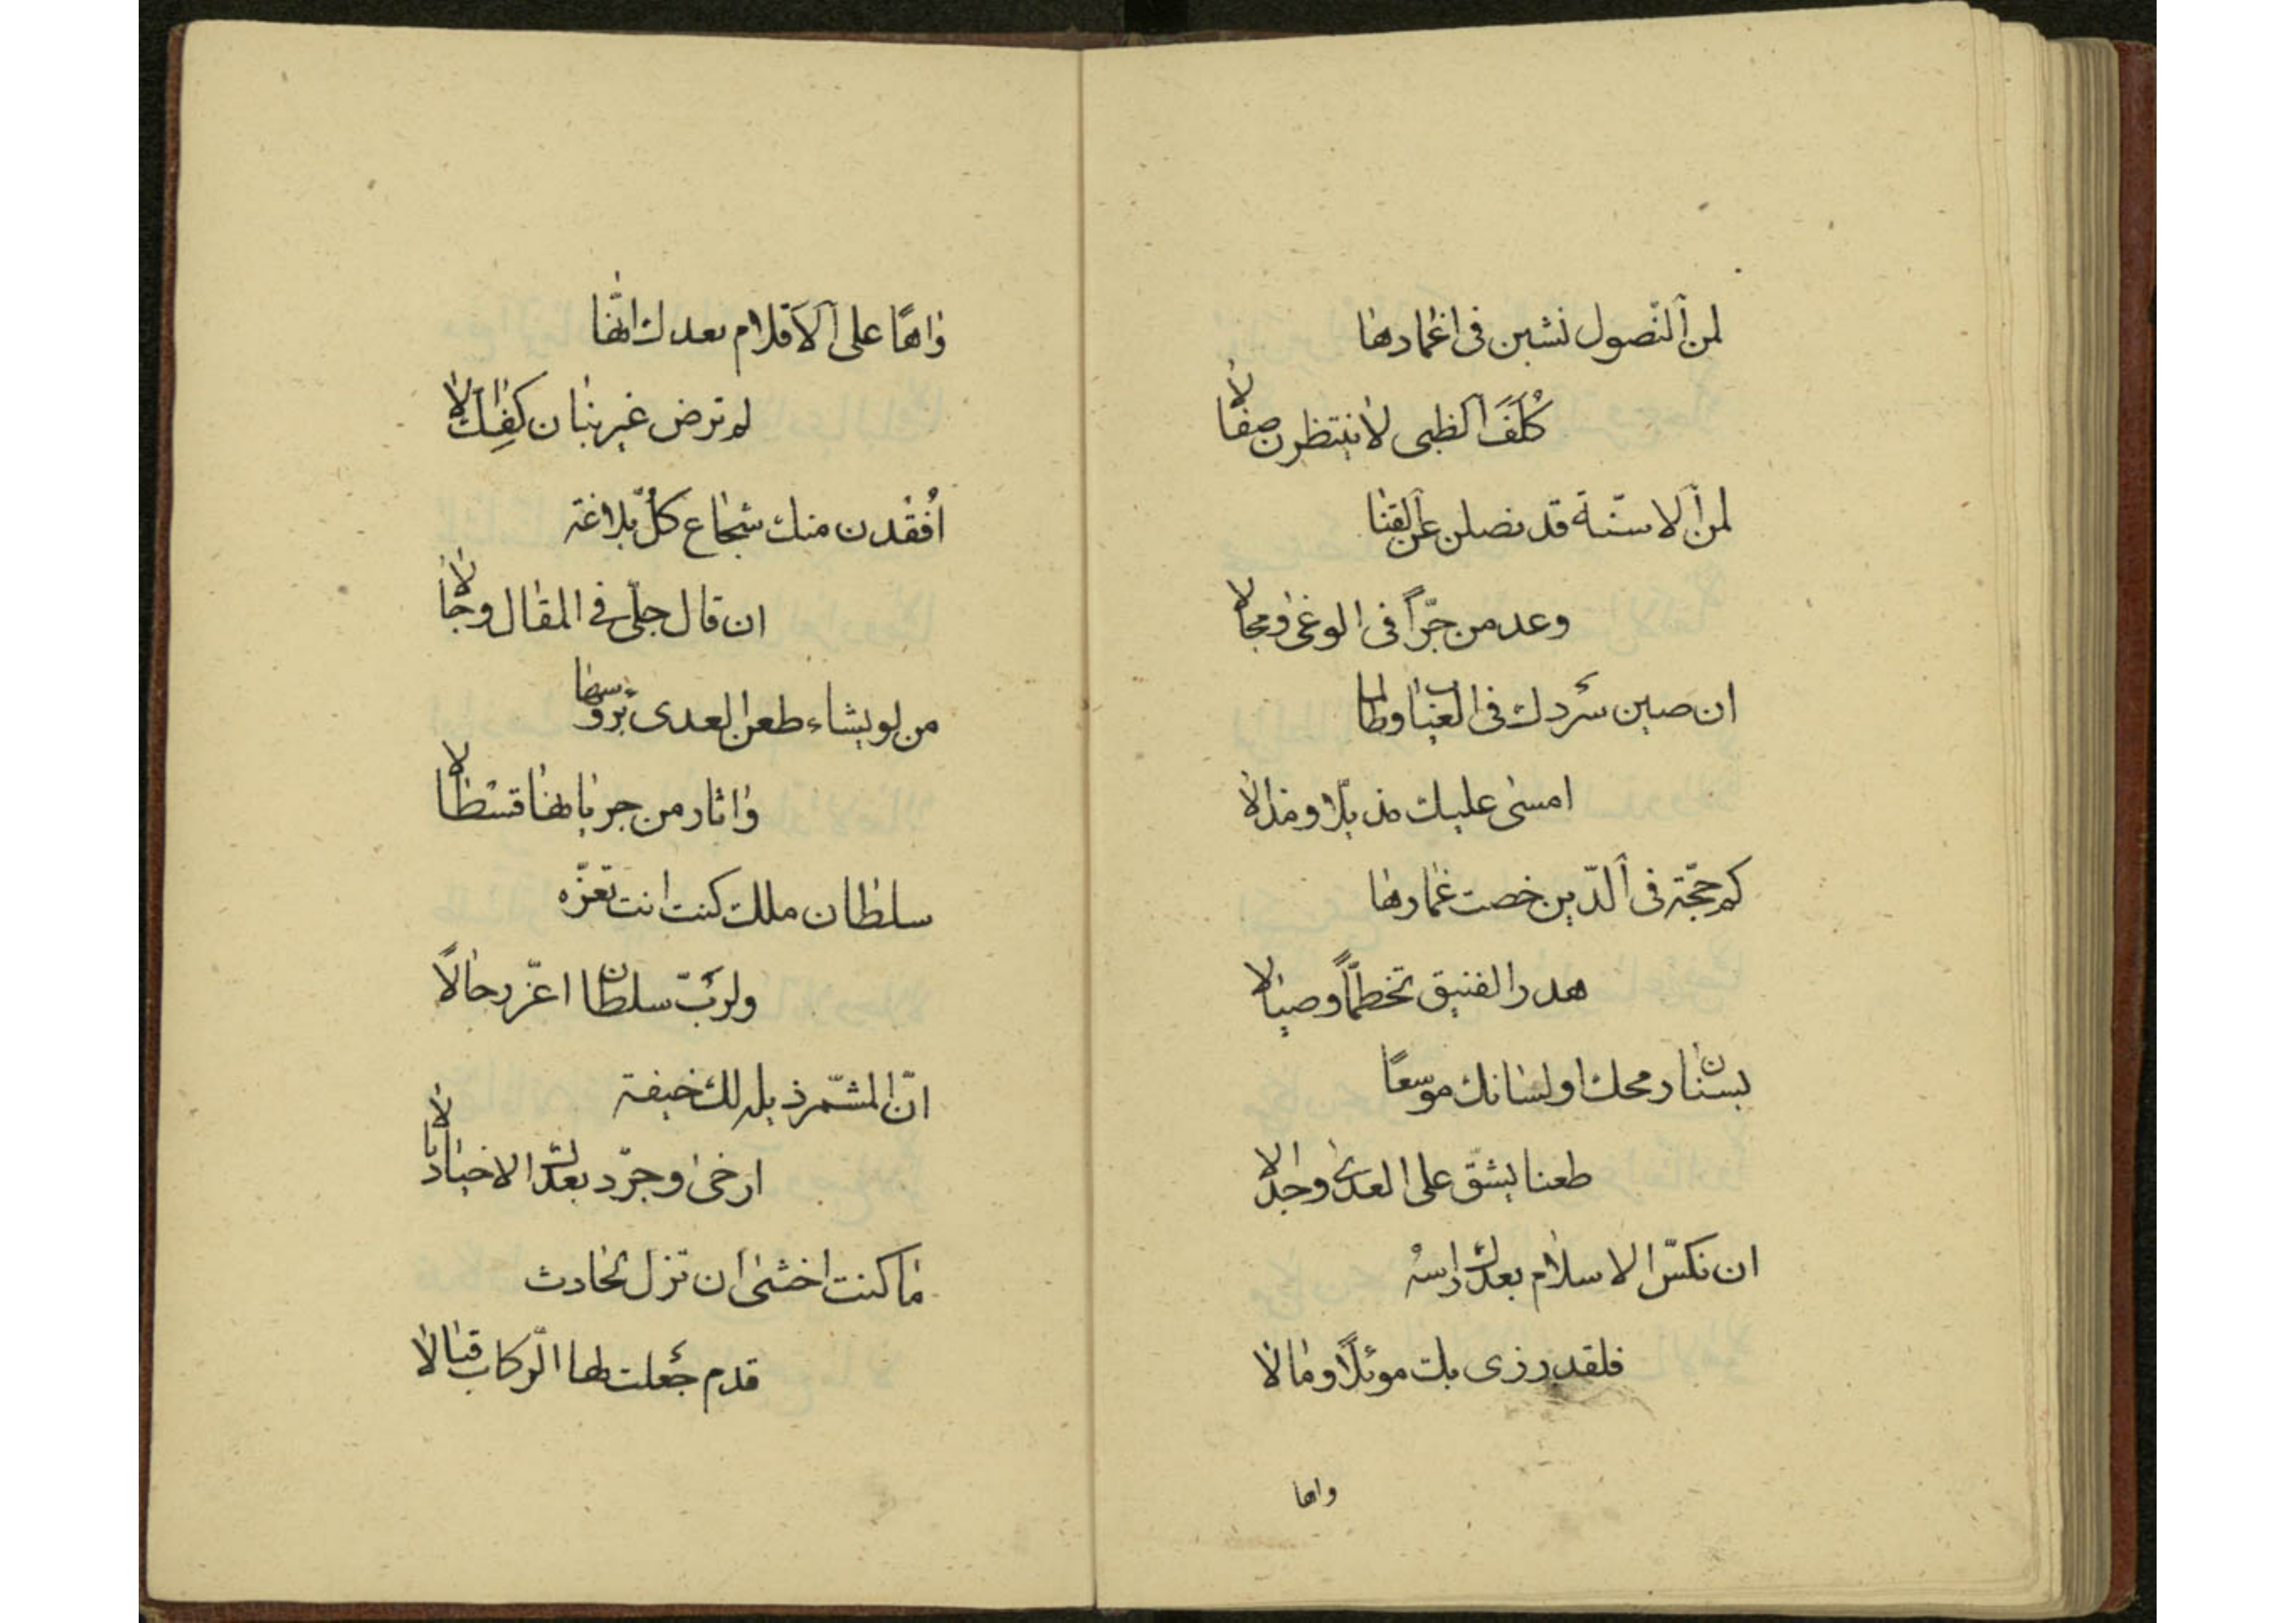 لمن ٱلنّصول نشبن فى اغمادها
كُلَفَ ٱلظبى لا ينتظرن صقالا
لمن ٱلاسنّة قد نصلن عن ٱلقنا
وعد من جرّاً فى الوغى ومجالا
ان صين سَردك فى العياب وطالما
امسى عليك مذيّلا ومذالا
كم حجّة فى ٱلدّين خضت غمارها
هدر الفنيق تخطّمًا وصيالا
بسنان رمحك او لسانك موسعًا
طعنا يشقّ على العدى وجدالا
ان نكسّ الاسلام بعدك راسهُ
فلقد رزى بك موئلًا ومالا
واها
واهًا على ٱلاَقلام بعدك انّها
لم ترض غير بنان كفّك الا
اُفقْدن منك شجاع كلّ بلاغة
ان قال جلّى فى المقال وجالا
من لو يشاء طعن العدى برؤسها
واثار من جريانها قسْطالا
سلطان ملك كنت انت تعزّه
ولربّ سلطان اعزّ رجالًا
انّ المشمّر ذيله لك خيفة
ارخى وجرّد بعدك الاذيالا
ما كنت اخشى ان تزل لحادث
قدم جُعلت لها الرّكاب قبالا